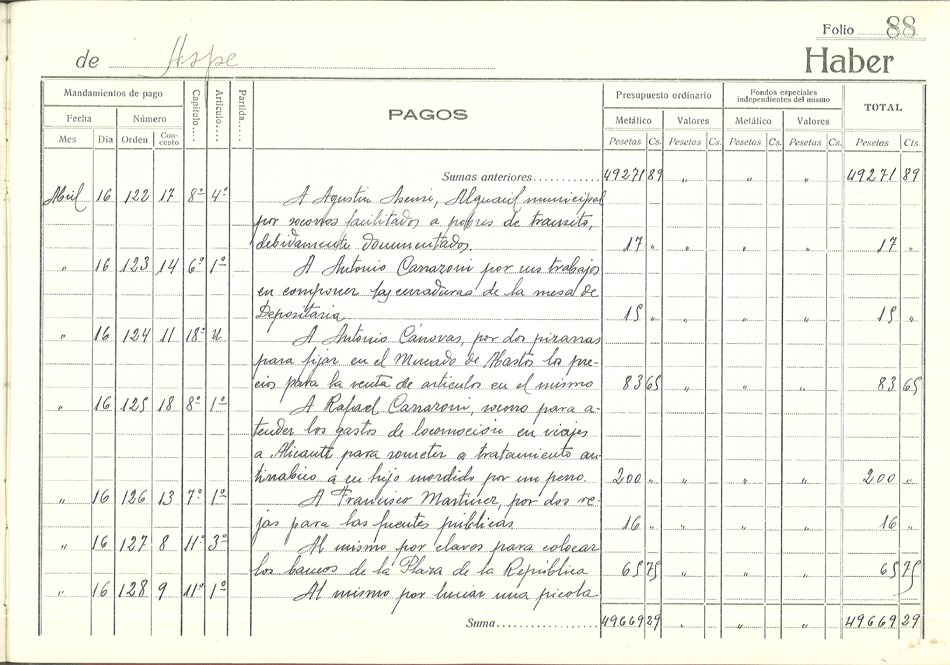 Folio 88
de Aspe Haber
Mandamientos de pago Capítulo.... Artículo.... Partida.... PAGOS Presupuesto ordinario Fondos especiales independientes del mismo TOTAL
Fecha Número Metálico Valores Metálico Valores
Mes Día Orden Concepto Pesetas Cs. Pesetas Cs. Pesetas Cs. Pesetas Cs. Pesetas Cts.
Sumas anteriores............ 49271 89 " " " 49271 89
Abril 16 122 17 8º 4º A Agustin Asensi, Alguacil municipal
por socorros facilitados a pobres de transito,
debidamente documentados. 17 " " " " 17 "
" 16 123 14 6º 1º A Antonio Carraroni por sus trabajos
en componer las cerraduras de la mesa de
Depositaria. 15 " " " " 15 "
" 16 124 11 18º u A Antonio Cánovas, por dos pizarras
para fijar en el Mercado de Abastos los pre-
cios para la venta de articulos en el mismo 83 65 " " " 83 65
" 16 125 18 8º 1º A Rafael Carraroni, socorro para a-
tender los gastos de locomoción en viajes
a Alicante para someter a tratamiento an-
tirrabico a su hijo mordido por un perro. 200 " " " " 200 "
" 16 126 13 7º 1º A Francisco Martinez, por dos re-
jas para las fuentes públicas 16 " " " " 16 "
" 16 127 8 11º 3º Al mismo por clavos para colocar
los bancos de la Plaza de la República 65 75 " " " 65 75
" 16 128 9 11º 1º Al mismo por luciar una picola
Suma..................... 49669 29 " " " 49669 29